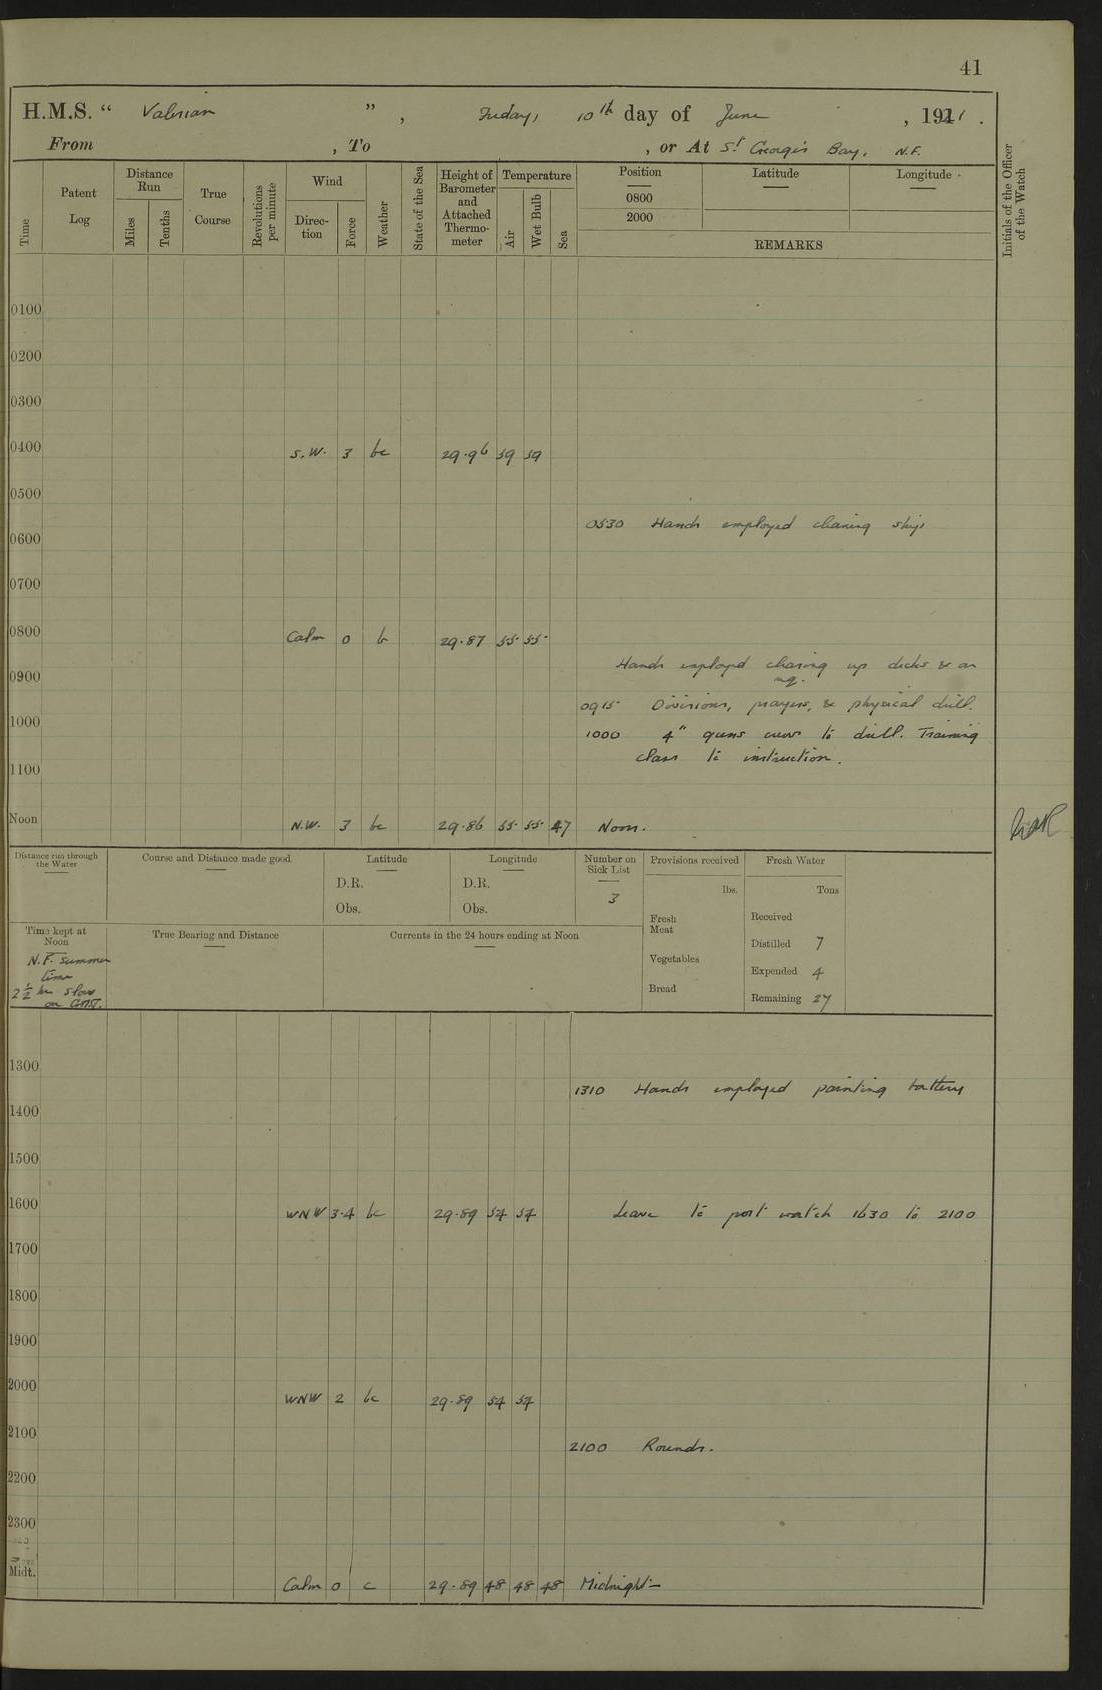 41
H.M.S. “ Valerian ” , Friday, 10th day of June , 1921 .
From , To , or At St George's Bay, N.F.
Time
Patent Log
Distance Run
Miles
Tenths
True Course
Revolutions per minute
Wind
Direction
Force
Weather
State of the Sea
Height of Barometer and Attached Thermometer
Temperature
Air
Wet Bulb
Sea
Position
0800
2000
Latitude
Longitude
REMARKS
Initials of the Officer of the Watch
0100
0200
0300
0400 S.W. 3 bc 29.96 59 59
0500
0530 Hands employed cleaning ship
0600
0700
0800 Calm 0 b 29.87 55 55
Hands employed cleaning up decks &
0900
0915 Divisions, prayers, & physical drill.
1000 1000 4" guns crews to drill. Training
class to instruction.
1100
Noon N.W. 3 bc 29.86 55 55 47 Noon.
Distance run through the Water
Course and Distance made good
Latitude
D.R.
Obs.
Longitude
D.R.
Obs.
Number on Sick List
3
Provisions received
lbs.
Fresh Meat
Vegetables
Bread
Fresh Water
Tons
Received
Distilled 7
Expended 4
Remaining 27
Time kept at Noon
N.F. summer
time
2½ hrs slow
on GMT.
True Bearing and Distance
Currents in the 24 hours ending at Noon
1300
1310 Hands employed painting battery
1400
1500
1600 WNW 3-4 bc 29.89 57 57 Leave to port watch 1630 to 2100
1700
1800
1900
2000 WNW 2 bc 29.89 54 54
2100
2100 Rounds.
2200
2300
Midt. Calm 0 c 29.89 48 48 48 Midnight